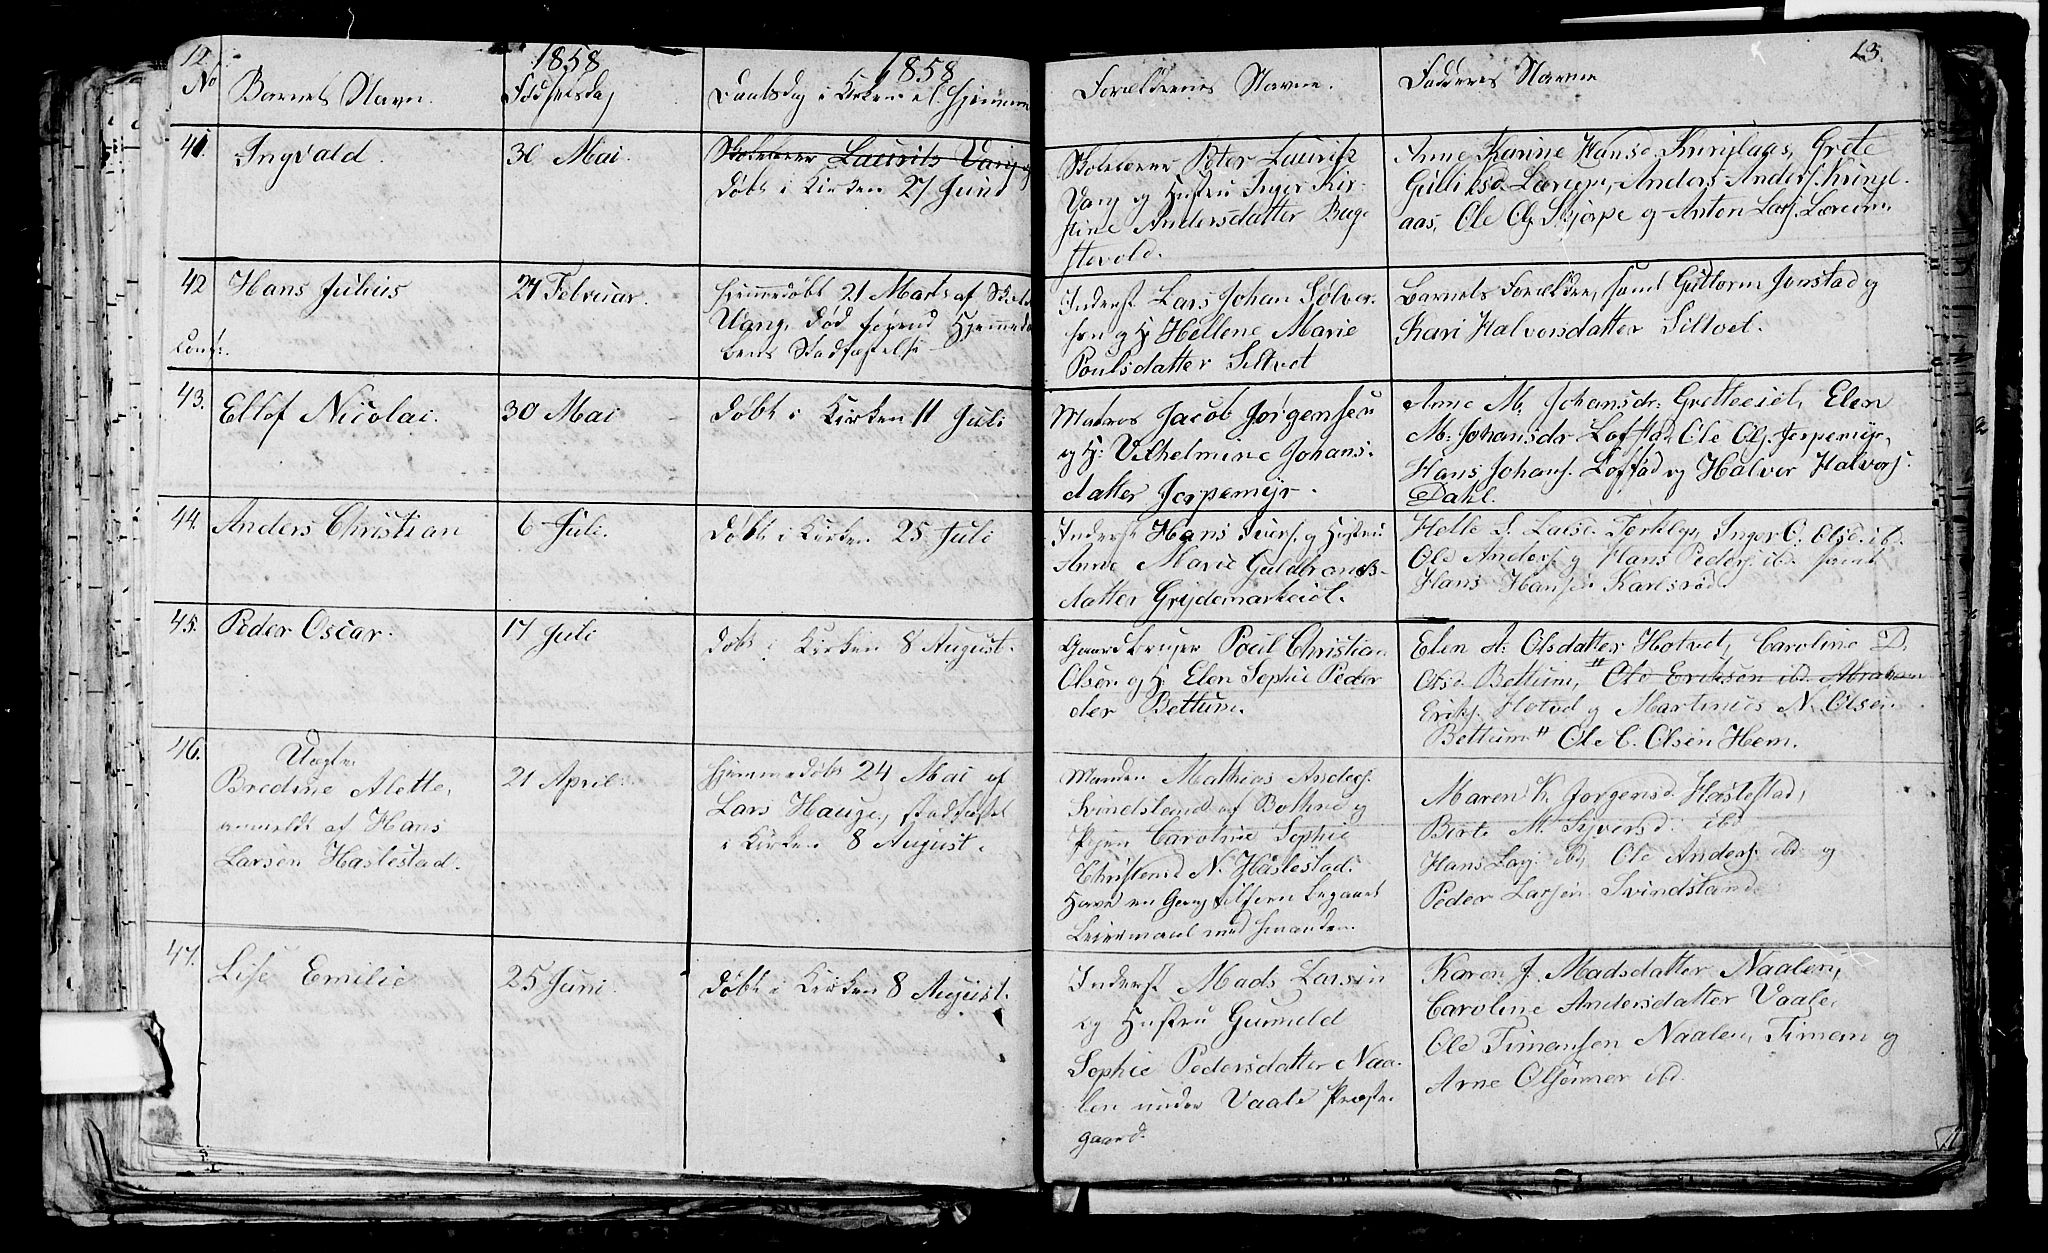 12.
1858
1858
No
Barnets Navn.
Fødselsdag
Daabsdag i Kirken el. Hjemme
Forældrenes Navne.
Faddernes Navne
13.
41.
Ingvald.
30 Mai.
Skolelærer Laurits Vang og
døbt i Kirken 27 Juni
Skolelærer Peter Lauritz
Vang og Hustru Inger Kir-
stine Andersdatter Bage
Hvold.
Anne Karine Hansd.
Gulliksd. Anders Anders.
aas, Ole Ols. Skjerpe og Anton Lars.
42
Conf:
Hans Julius
24 Februar.
Hjemmedøbt 21 Marts af
Vang, død førend Hjemmedaa-
bens Stadfæstelse
Inderst Lars Johan Sølver-
sen og H. Hellene Marie
Poulsdatter Siltvet
Barnets Forældre, samt Guttorm Jonstad og
Kari Halvorsdatter Siltvet.
43.
Ellof Nicolai.
30 Mai
døbt i Kirken 11 Juli
Matros Jacob Jørgensen
og H: Vilhelmine Johans-
datter Jerpemyr.
Anne M. Johansdr: Gretteeiet, Elen
M: Johansdr Lofstad Ole Ols. Jerpemyr,
Hans Johans. Lofstad og Halvor Halvors.
Dahl.
44.
Anders Christian
6 Juli.
døbt i Kirken 25 Juli
Inderst Hans Ivers. og Hustru
Anne Marie Guldbrands-
datter Grydemarkeiet.
Helle S. Larsd. Inger O. Olsd. ib.
Ole Anders. og Hans Peders. ibd. samt
Hans Hansen Karlsrød
45.
Peder Oscar.
17 Juli
døbt i Kirken 8 August.
Gaardbruger Poul Christian
Olsen og H. Elen Sophie Peder
der Bettum.
Elen A: Olsdatter Hotvet, Caroline D.
Olsd. Bettum, # Ole Eriksen ibd. Abraham
Eriks. Hotvd og Martinus N. Olsen
Bettum # Ole C. Olsen Hem.
46.
Uægte
Bredine Alette,
anmeldt af Hans
Larsen Haslestad.
21 April.
Hjemmedøbt 24 Mai af
Lars Hauge, stadfæstet
i Kirken 8 August.
Manden Mathias Anders.
Svindsland af Bothne og
Pigen Caroline Sophie
Christensd N. Haslestad.
Havd en Gang tilforn begaaet
Leiermaal med
Maren K. Jørgensd. Haslestad,
Berte M. Syversd. ibd
Hans Lars. ibd, Ole Anders. ibd og
Peder Larsen Svindsland.
47.
Lise Emilie
25 Juni.
døbt i Kirken 8 August.
Inderst Mads Larsen
og Hustru Gunneld
Sophie Pedersdatter Naa-
len under Vaale Præste-
gaard.
Karen J. Madsdatter Naalen,
Caroline Andersdatter Vaale,
Ole Timansen Naalen, Timan og
Arne Olsønner ibd.